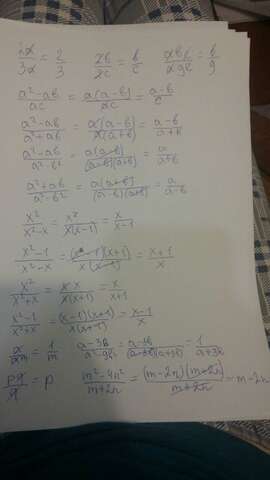 2a/3a = 2/3  2b/2c = b/c  abc/agc = b/g
a²-ab/ac = a(a-b)/ac = a-b/c
a²-ab/a²+ab = a(a-b)/a(a+b) = a-b/a+b
a²-ab/a²-b² = a(a-b)/(a-b)(a+b) = a/a+b
a²+ab/a²-b² = a(a+b)/(a-b)(a+b) = a/a-b
x²/x²-x = x²/x(x-1) = x/x-1
x²-1/x²-x = (x-1)(x+1)/x(x-1) = x+1/x
x²/x²+x = x·x/x(x+1) = x/x+1
x²-1/x²+x = (x-1)(x+1)/x(x+1) = x-1/x
a/am = 1/m  a-3b/a²-9b² = a-3b/(a-3b)(a+3b) = 1/a+3b
pq/q = p  m²-4n²/m+2n = (m-2n)(m+2n)/m+2n = m-2n